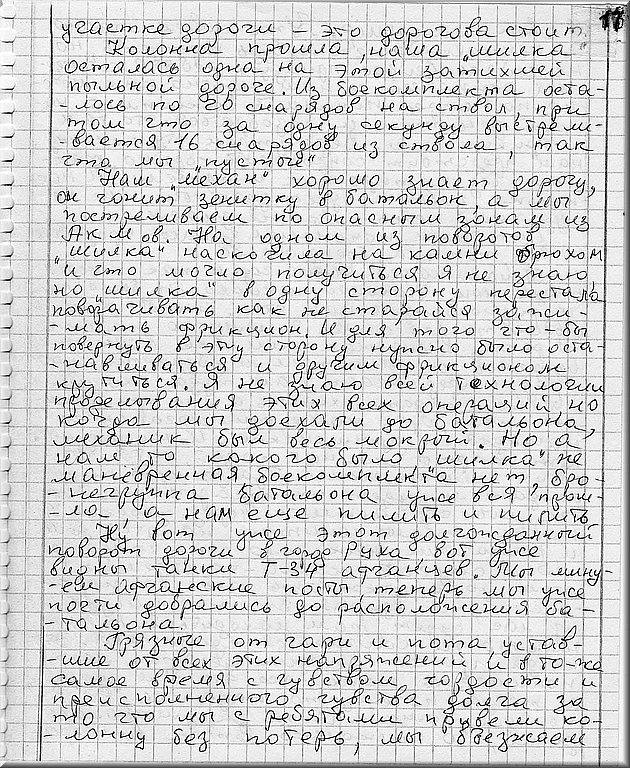 18
участке дороги – это дорогова стоит.
Колонна прошла, наша „шилка"
осталась одна на этой затихшей
пыльной дороге. Из боекомплекта оста-
-лось по 20 снарядов на ствол, при
том что за одну секунду выстрели-
-вается 16 снарядов из ствола, так
что мы „пустые"
Наш „механ" хорошо знает дорогу,
он гонит зенитку в батальон, а мы
постреливаем по опасным зонам из
АКМов. На одном из поворотов
„шилка" наскочила на камни брюхом
и что могло получиться я не знаю,
но „шилка" в одну сторону перестала
поворачивать как не старайся зажи-
-мать фрикцион. И для того что-бы
повернуть в эту сторону нужно было оста-
-навливаться и другим фрикционом
крутиться. Я не знаю всей технологии
проделывания этих всех операций, но
когда мы доехали до батальона,
механик был весь мокрый. Но а
нам то каково было „шилка" не
маневренная боекомплекта нет, бро-
-негруппа батальона уже вся прош-
-ла, а нам еще пилить и пилить
Ну, вот уже этот долгожданный
поворот дороги в город Руха, вот уже
видны танки Т-34 афганцев. Мы мину-
-ем афганские посты, теперь мы уже
почти добрались до расположения ба-
-тальона.
Грязные от гари и пота, устав-
-шие от всех этих напряжений и в то-же
самое время с чувством гордости и
преисполненного чувства долга за
то что мы с ребятами провели ко-
-лонну без потерь, мы въезжаем